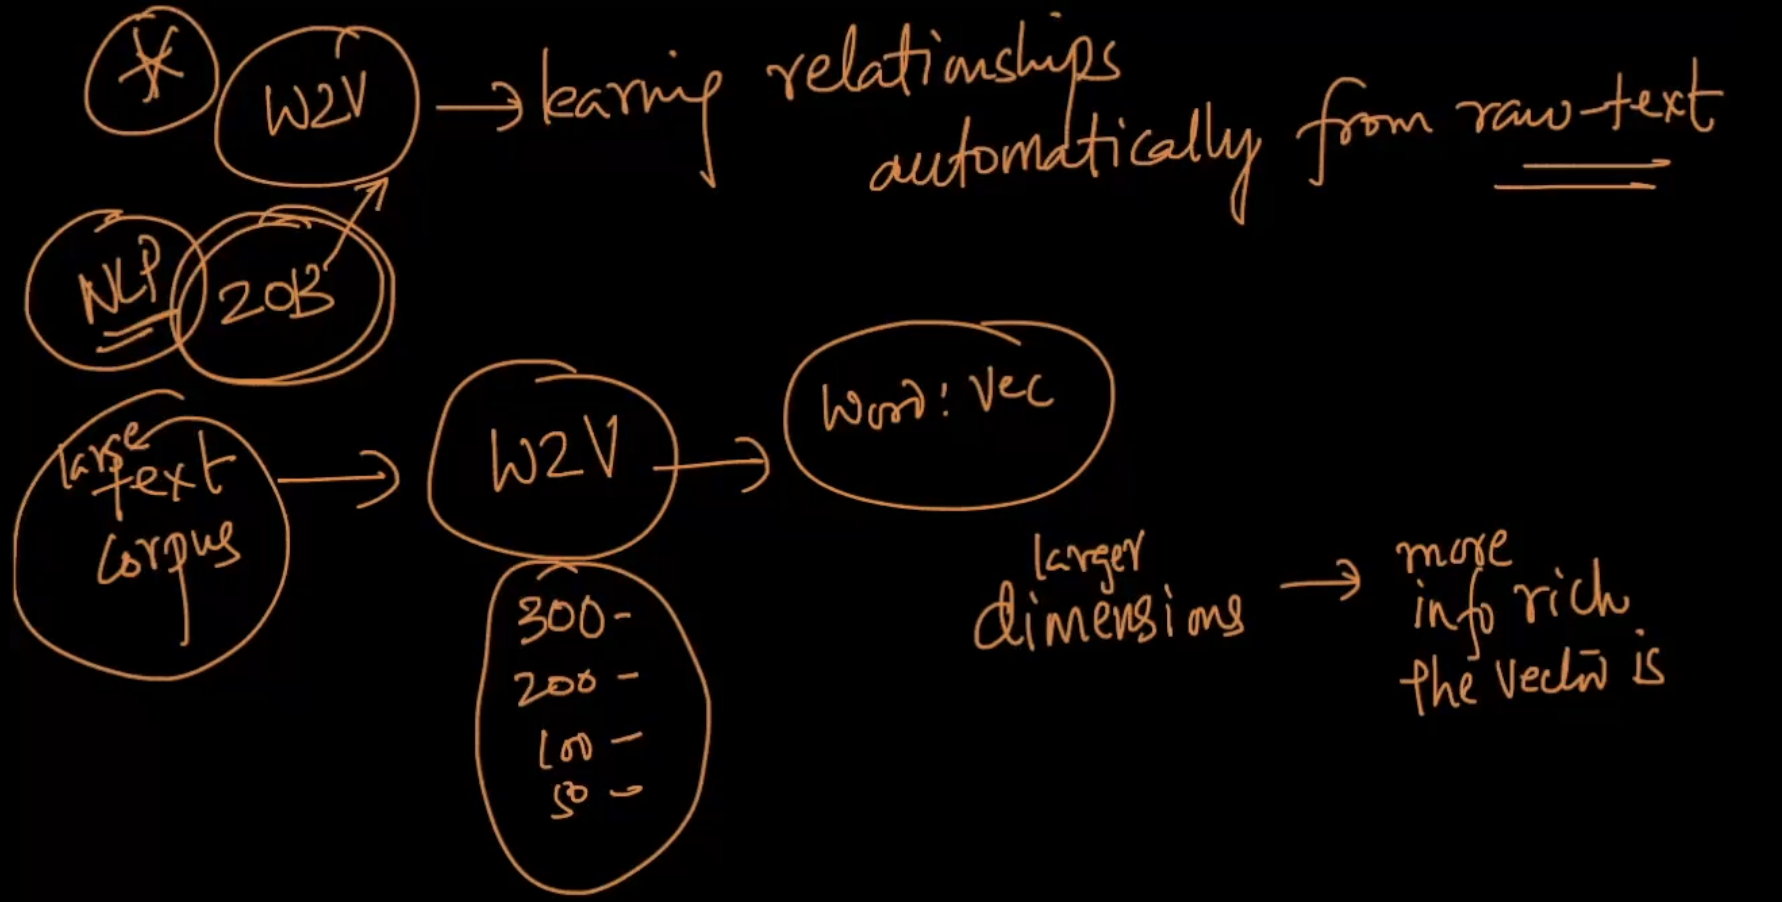 W2V → learning relationships
automatically from raw-text
NLP 2013
large
text
corpus → W2V → Word: Vec
300 -
200 -
100 -
50 -
larger
dimensions → more
info rich
the vector is